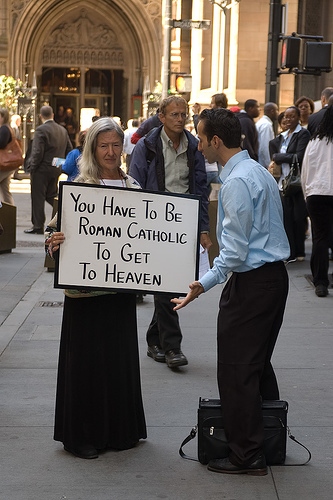 You Have To Be
Roman Catholic
To Get
To Heaven